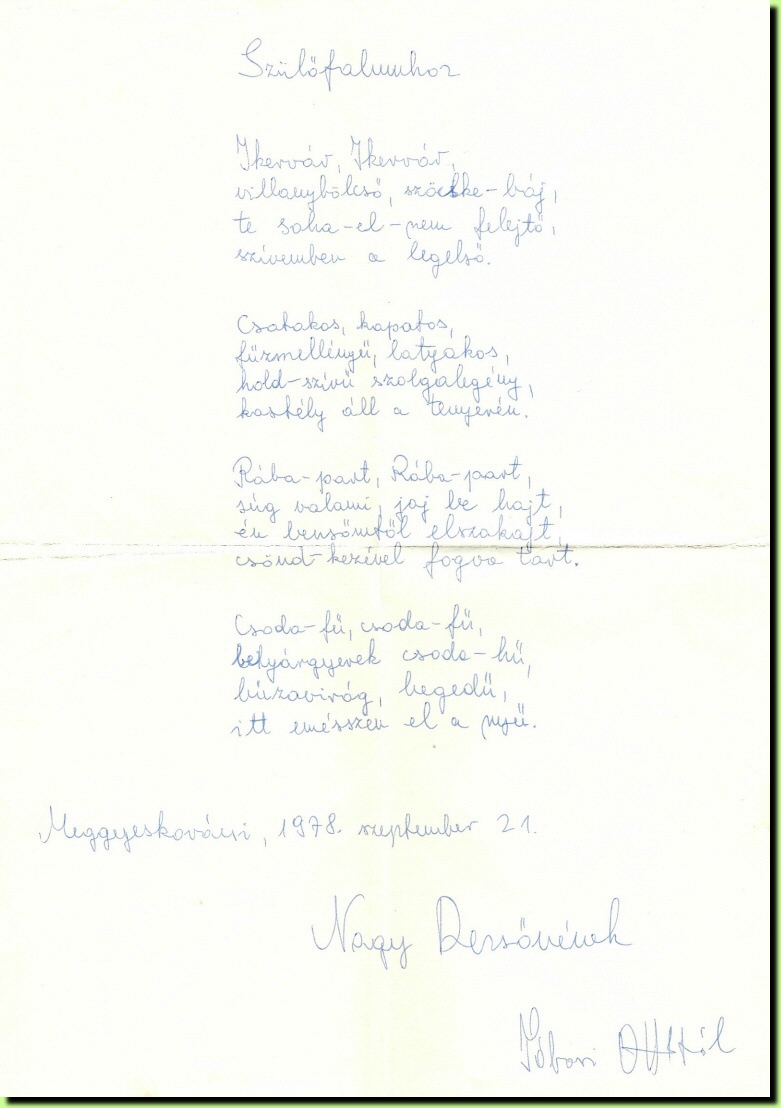 Szülőfalumhoz
Ikervár, Ikervár,
villanybölcső, szöcske-báj,
te soha-el-nem felejtő,
szívemben a legelső.
Csatakos, kapatos,
fűzmellényű, latyakos,
hold-szívű szolgalegény,
kastély áll a tenyerén.
Rába-part, Rába-part,
súg valami, jaj be hajt,
én bensőmtől elszakajt,
csönd-kezével fogva tart.
Csoda-fű, csoda-fű,
betyárgyerek csoda-hű,
búzavirág, hegedű,
itt emésszen el a nyű.
Meggyeskovácsi, 1978. szeptember 21.
Nagy Dezsőnének
Jóbori Ottótól